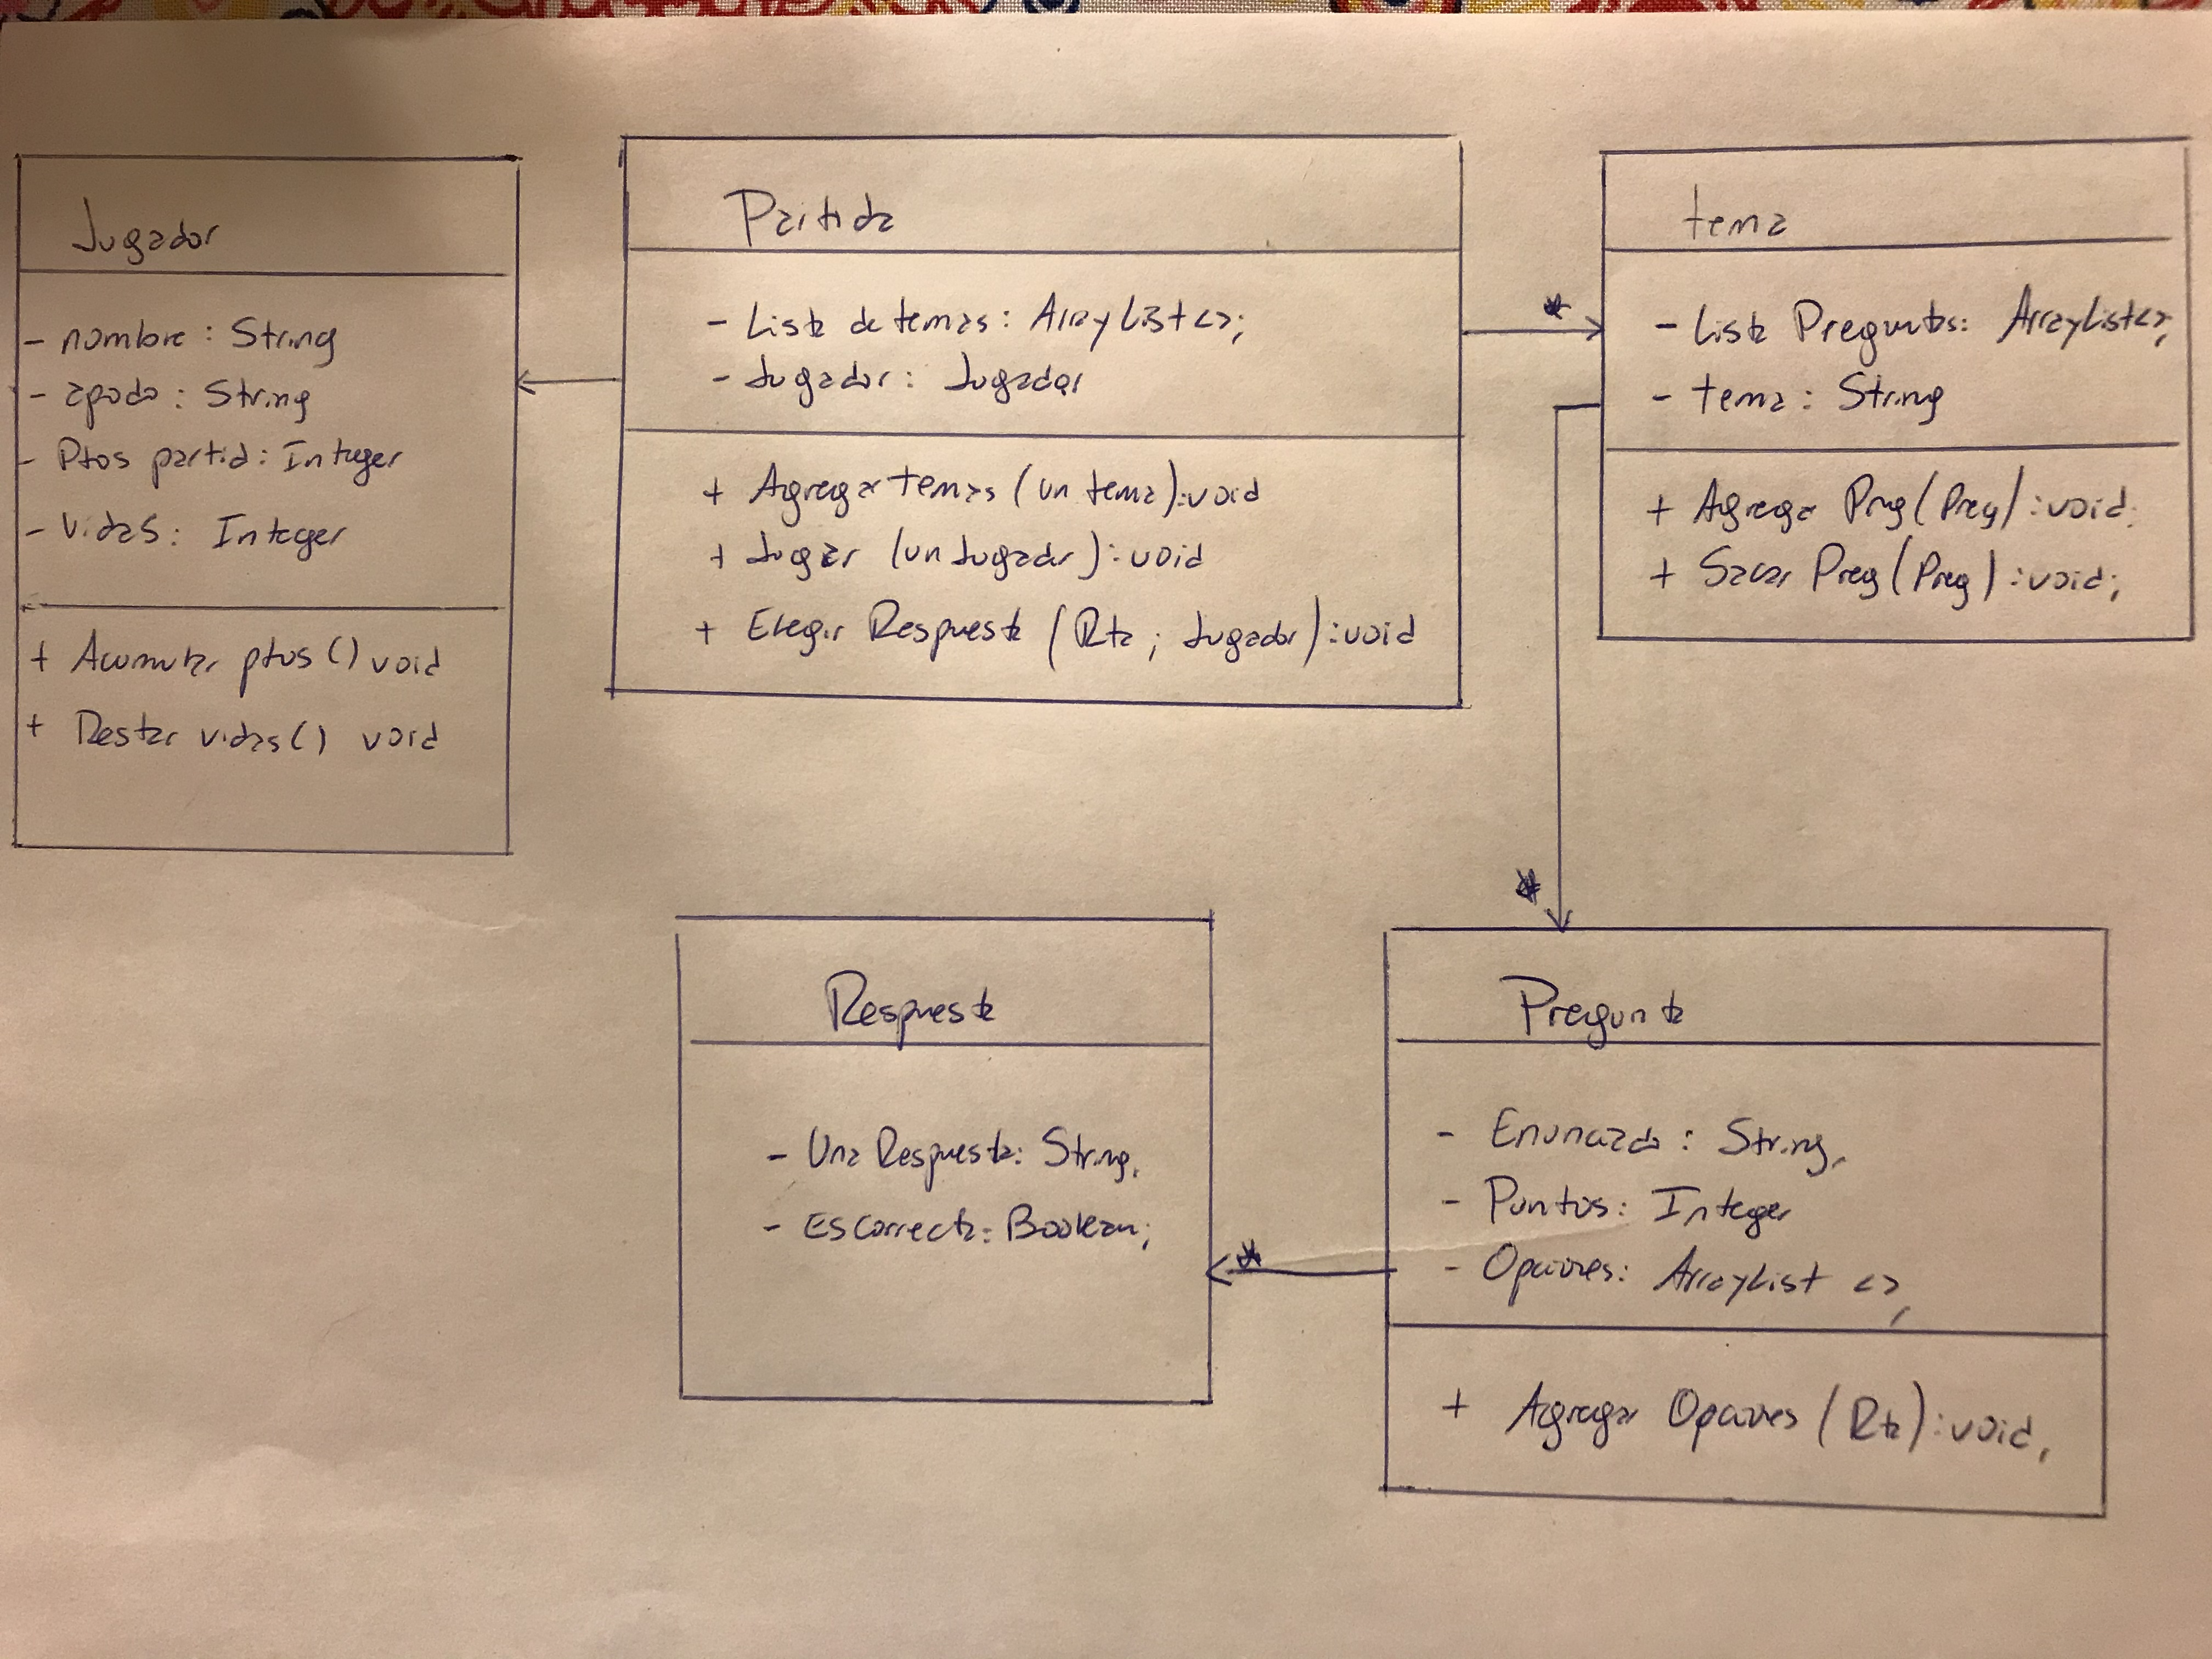 Jugador
- nombre : String
- apodo : String
- Ptos partid : Integer
- Vidas : Integer
+ Acumular ptos () void
+ Restar vidas () void
Partida
- Lista de temas : ArrayList <>;
- Jugador : Jugador
+ Agregar temas (un tema) : void
+ Jugar (un Jugador) : void
+ Elegir Respuesta (Rta ; Jugador) : void
*
tema
- Lista Preguntas : ArrayList<>;
- tema : String
+ Agregar Preg (Preg) : void;
+ Sacar Preg (Preg) : void;
*
Respuesta
- Una Respuesta : String;
- Es Correcta : Boolean;
*
Pregunta
- Enunciado : String;
- Puntos : Integer
- Opciones : ArrayList <>;
+ Agregar Opciones (Rta) : void;